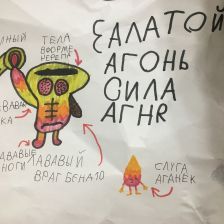 ЕАЛАТОЙ
АГОНЬ
СИЛА
АГНЯ
ТЕЛА
ВФОРМЕ
ЧЕРЕПА
КА
НОГИ
ЛАВАВЫЙ
ВРАГ БЕНА10
СЛУГА
АГАНЁК